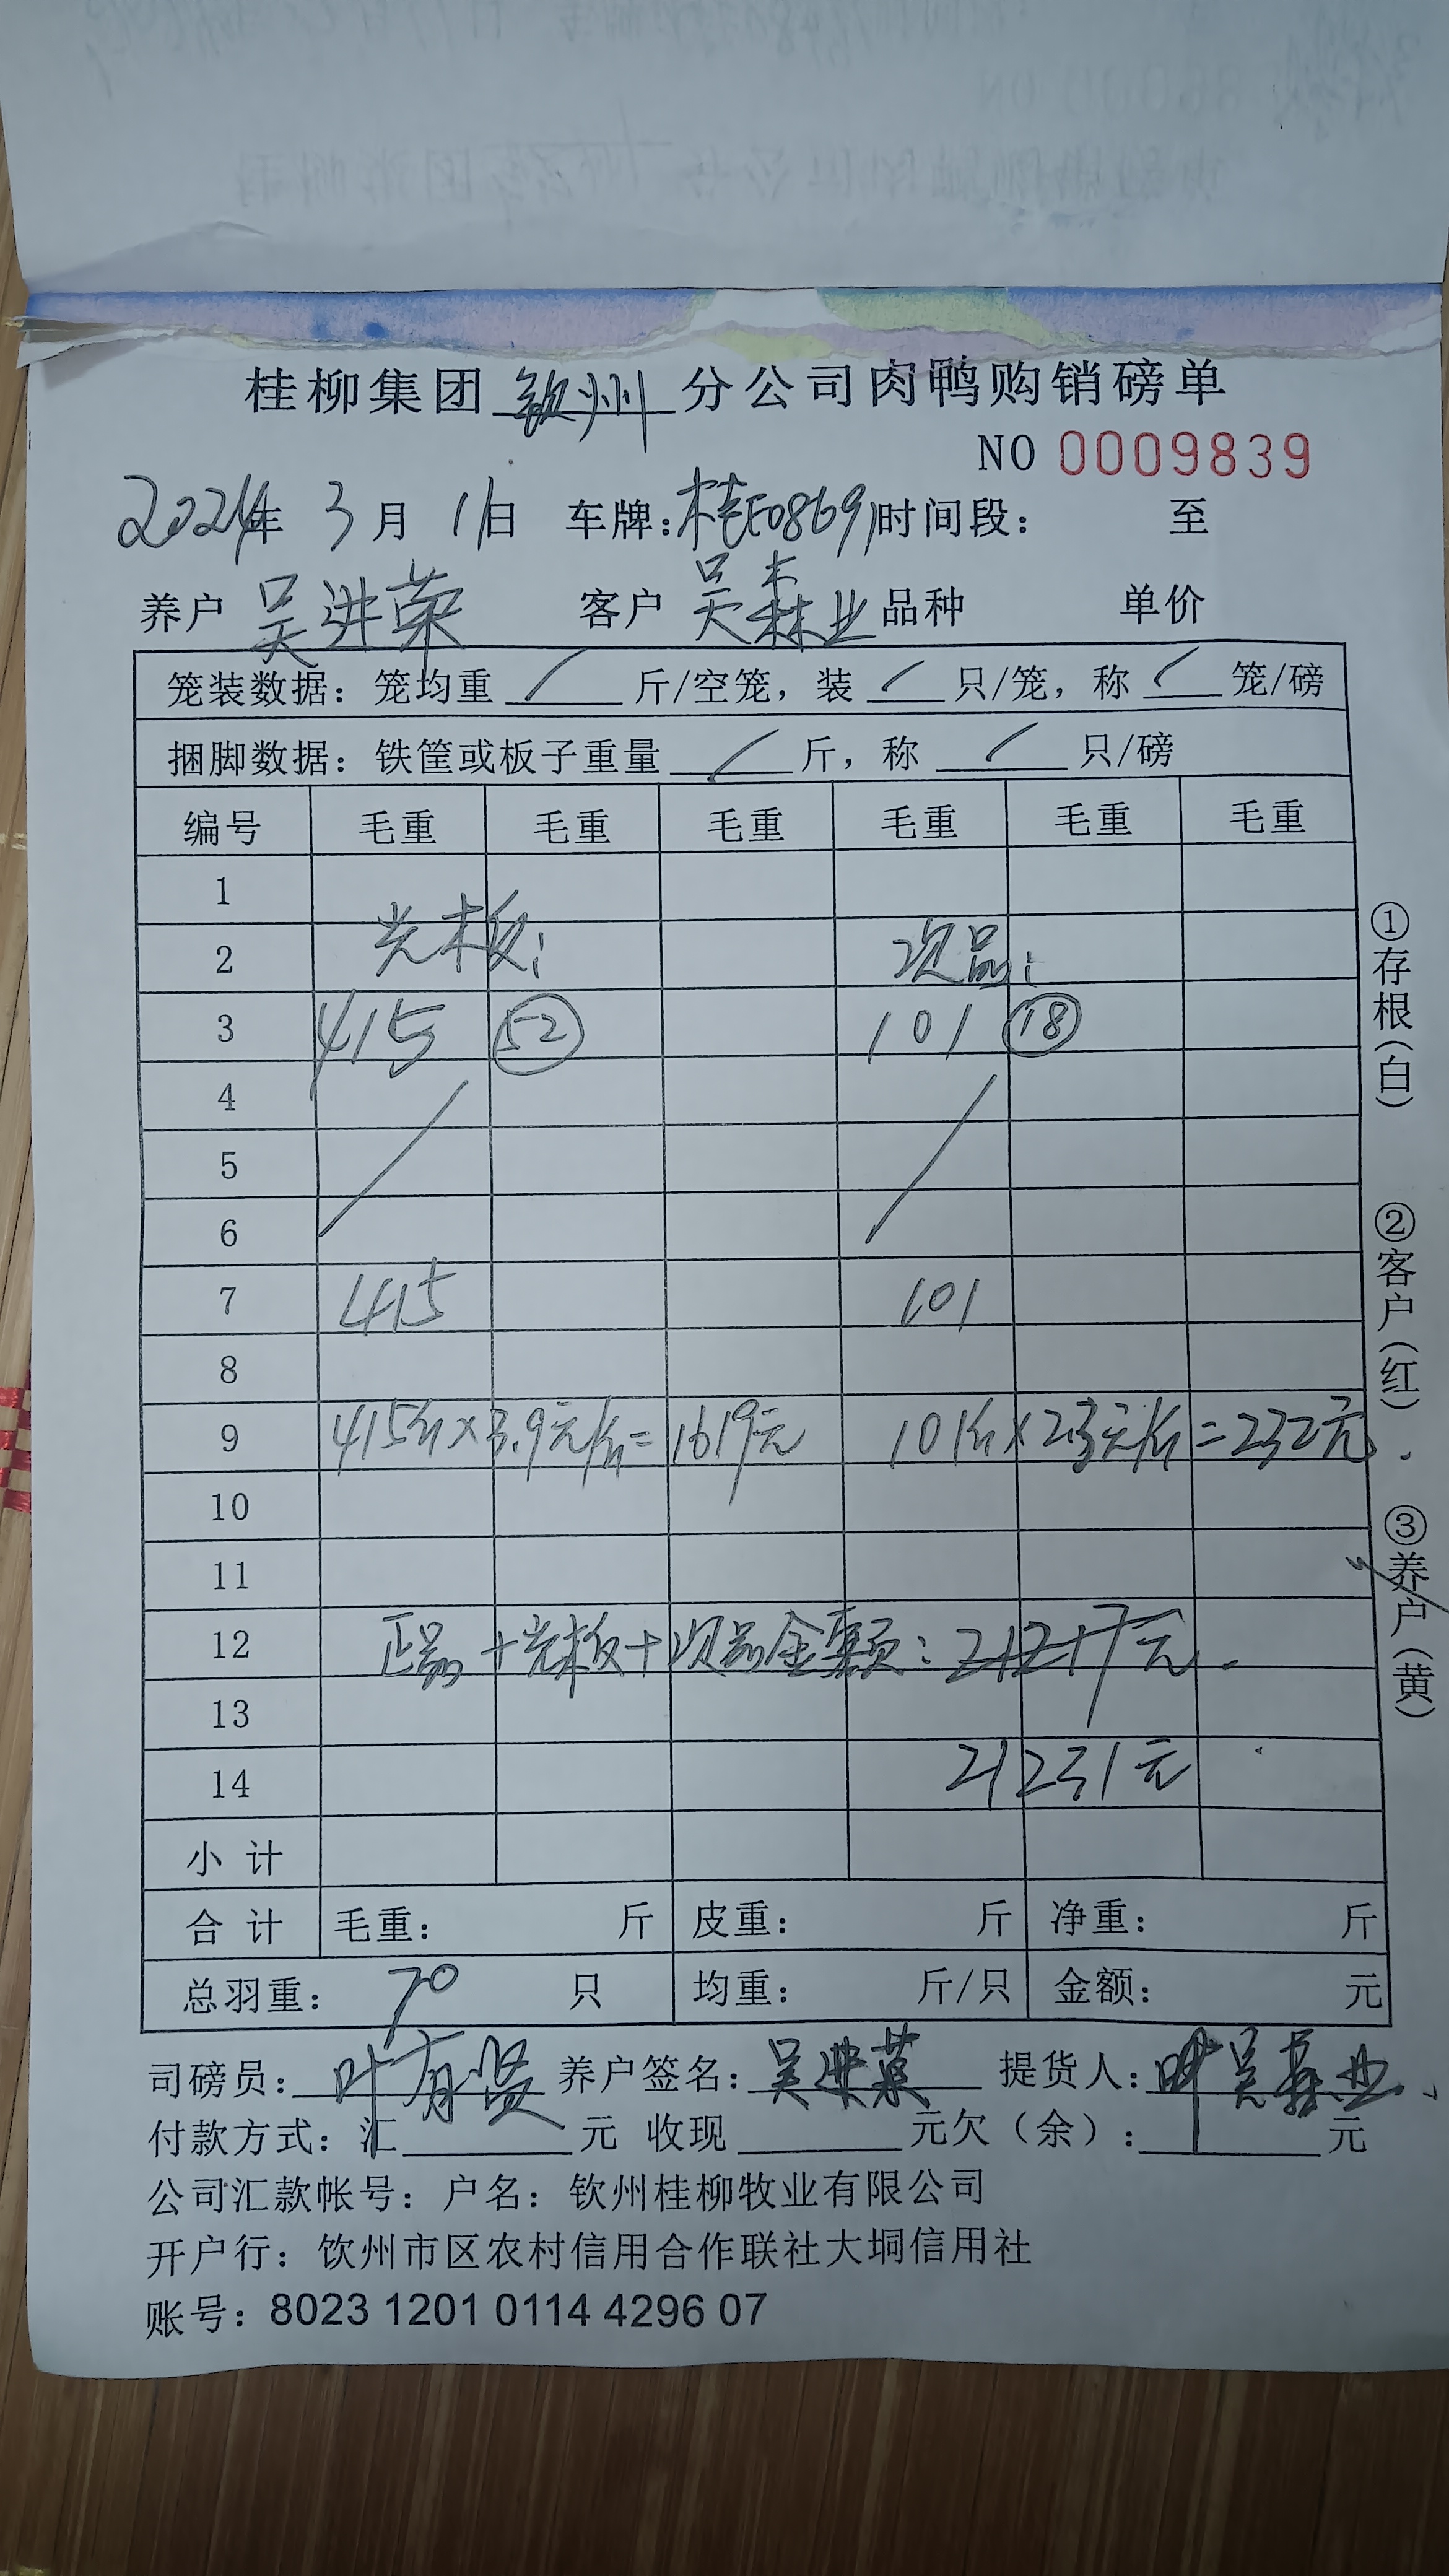 桂柳集团 钦州 分公司肉鸭购销磅单
NO 0009839
2024年 3月 11日 车牌：桂E08691 时间段： 至
养户 吴进荣 客户 吴森业 品种 单价
笼装数据：笼均重 / 斤/空笼，装 / 只/笼，称 / 笼/磅
捆脚数据：铁筐或板子重量 / 斤，称 / 只/磅
编号 毛重 毛重 毛重 毛重 毛重 毛重
1
2 光板： 次品：
3 415 52 101 18
4
5
6
7 415 101
8
9 415斤×3.9元/斤=1619元 101斤×2.3元/斤=232元
10
11
12 正品+光板+次品金额：
13
14 21231元
小计
合计 毛重： 斤 皮重： 斤 净重： 斤
总羽重： 70 只 均重： 斤/只 金额： 元
司磅员：叶有贤 养户签名：吴进荣 提货人：吴森业
付款方式：汇 元 收现 元欠（余）： 元
公司汇款帐号：户名：钦州桂柳牧业有限公司
开户行：饮州市区农村信用合作联社大垌信用社
账号：8023 1201 0114 4296 07
①存根（白）
②客户（红）
③养户（黄）